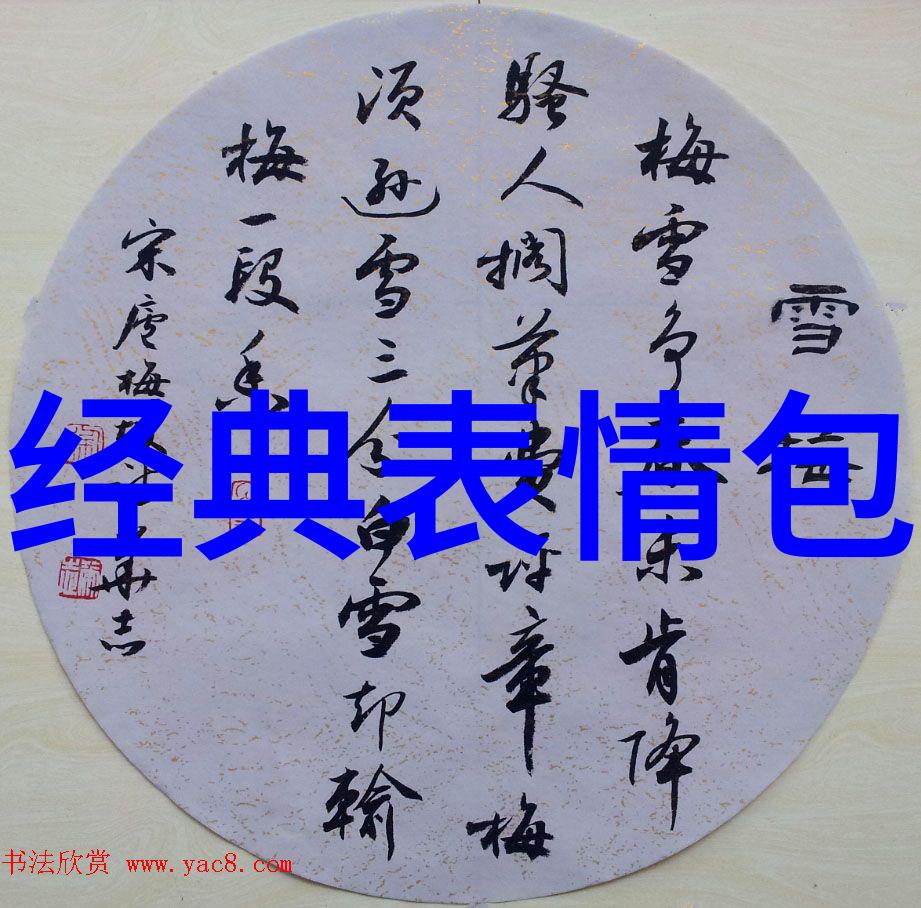 雪梅
梅雪争春未肯降
骚人搁筆费评章梅
须逊雪三分白雪却输
梅一段香
宋卢梅坡
志
经典表情包
书法欣赏 www.yac8.com